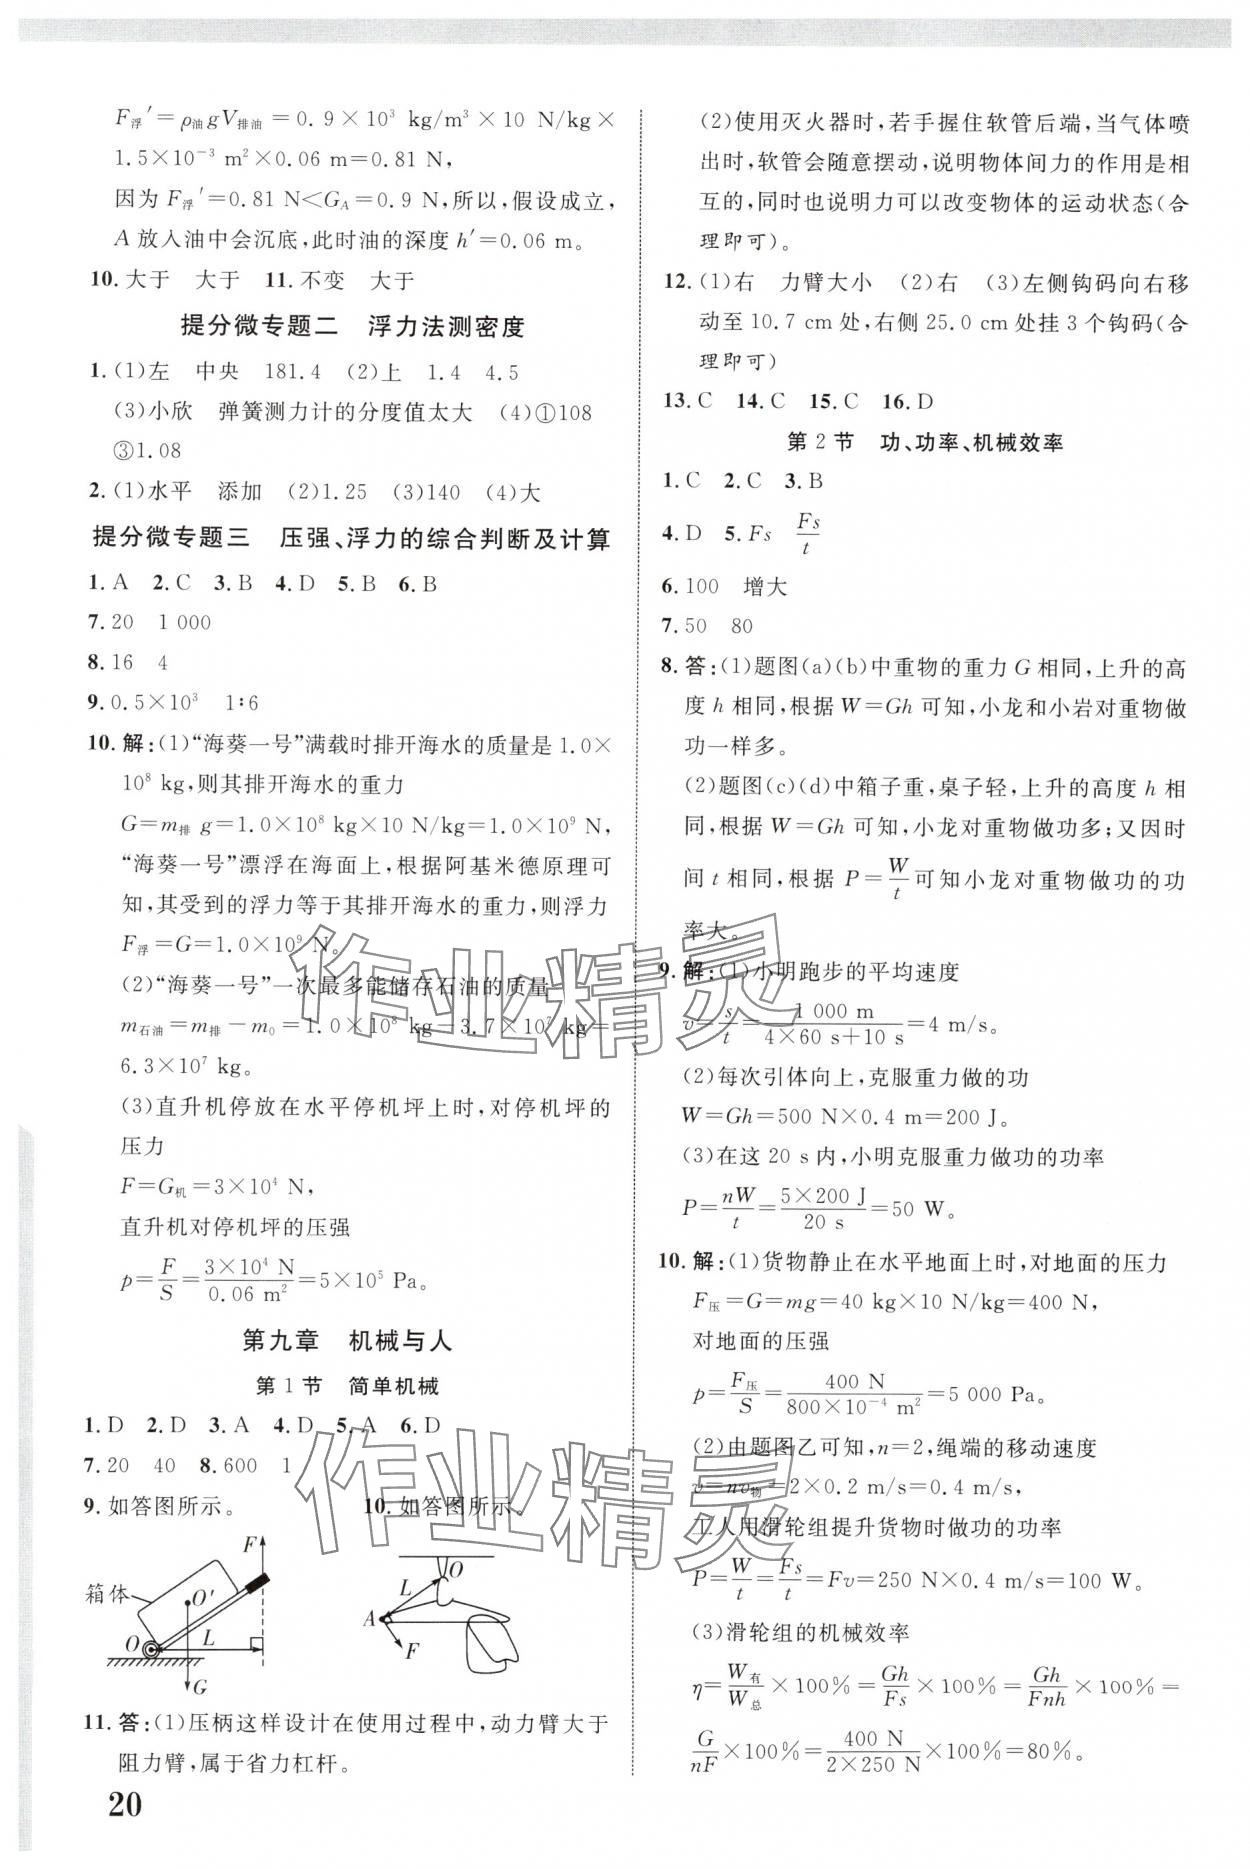 F浮′=ρ油gV排油=0.9×10³ kg/m³×10 N/kg×
1.5×10⁻³ m²×0.06 m=0.81 N,
因为F浮′=0.81 N<G_A=0.9 N,所以,假设成立,
A放入油中会沉底,此时油的深度h′=0.06 m。
10.大于 大于 11.不变 大于
提分微专题二 浮力法测密度
1.(1)左 中央 181.4 (2)上 1.4 4.5
(3)小欣 弹簧测力计的分度值太大 (4)①108
③1.08
2.(1)水平 添加 (2)1.25 (3)140 (4)大
提分微专题三 压强、浮力的综合判断及计算
1.A 2.C 3.B 4.D 5.B 6.B
7.20 1 000
8.16 4
9.0.5×10³ 1∶6
10.解:(1)“海葵一号”满载时排开海水的质量是1.0×
10⁸ kg,则其排开海水的重力
G=m排 g=1.0×10⁸ kg×10 N/kg=1.0×10⁹ N,
“海葵一号”漂浮在海面上,根据阿基米德原理可
知,其受到的浮力等于其排开海水的重力,则浮力
F浮=G=1.0×10⁹ N。
(2)“海葵一号”一次最多能储存石油的质量
m石油=m排-m₀=1.0×10⁸ kg-3.7×10⁷ kg=
6.3×10⁷ kg。
(3)直升机停放在水平停机坪上时,对停机坪的
压力
F=G机=3×10⁴ N,
直升机对停机坪的压强
p=F/S=3×10⁴ N/0.06 m²=5×10⁵ Pa。
第九章 机械与人
第1节 简单机械
1.D 2.D 3.A 4.D 5.A 6.D
7.20 40 8.600 1
9.如答图所示。 10.如答图所示。
F
箱体
O′
O
L
G
O
L
A
F
11.答:(1)压柄这样设计在使用过程中,动力臂大于
阻力臂,属于省力杠杆。
20
(2)使用灭火器时,若手握住软管后端,当气体喷
出时,软管会随意摆动,说明物体间力的作用是相
互的,同时也说明力可以改变物体的运动状态(合
理即可)。
12.(1)右 力臂大小 (2)右 (3)左侧钩码向右移
动至10.7 cm处,右侧25.0 cm处挂3个钩码(合
理即可)
13.C 14.C 15.C 16.D
第2节 功、功率、机械效率
1.C 2.C 3.B
4.D 5.Fs Fs/t
6.100 增大
7.50 80
8.答:(1)题图(a)(b)中重物的重力G相同,上升的高
度h相同,根据W=Gh可知,小龙和小岩对重物做
功一样多。
(2)题图(c)(d)中箱子重,桌子轻,上升的高度h相
同,根据W=Gh可知,小龙对重物做功多;又因时
间t相同,根据P=W/t可知小龙对重物做功的功
率大。
9.解:(1)小明跑步的平均速度
v=s/t=1 000 m/(4×60 s+10 s)=4 m/s。
(2)每次引体向上,克服重力做的功
W=Gh=500 N×0.4 m=200 J。
(3)在这20 s内,小明克服重力做功的功率
P=nW/t=5×200 J/20 s=50 W。
10.解:(1)货物静止在水平地面上时,对地面的压力
F压=G=mg=40 kg×10 N/kg=400 N,
对地面的压强
p=F压/S=400 N/(800×10⁻⁴ m²)=5 000 Pa。
(2)由题图乙可知,n=2,绳端的移动速度
v=nv物=2×0.2 m/s=0.4 m/s,
工人用滑轮组提升货物时做功的功率
P=W/t=Fs/t=Fv=250 N×0.4 m/s=100 W。
(3)滑轮组的机械效率
η=W有/W总×100%=Gh/Fs×100%=Gh/Fnh×100%=
G/nF×100%=400 N/(2×250 N)×100%=80%。
作业精灵
作业精灵